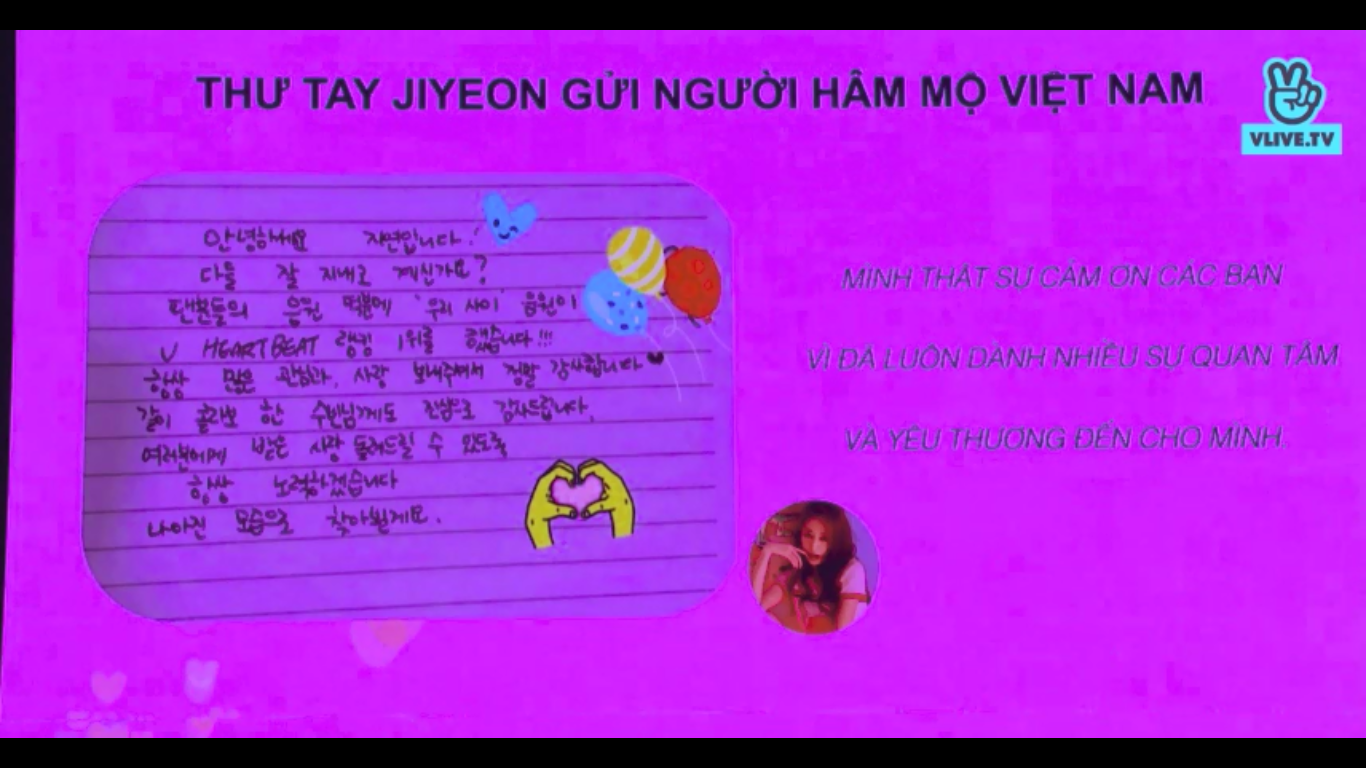 THƯ TAY JIYEON GỬI NGƯỜI HÂM MỘ VIỆT NAM
VLIVE.TV
안녕하세요 지연입니다.
다들 잘 지내고 계신가요?
팬분들의 응원 덕분에 '우리 사이' 음원이
V HEARTBEAT 랭킹 1위를 했습니다!!!
항상 많은 관심과, 사랑 보내주셔서 정말 감사합니다
같이 콜라보 한 수빈님께도 진심으로 감사드립니다.
여러분에게 받은 사랑 돌려드릴 수 있도록
항상 노력하겠습니다
나아진 모습으로 찾아뵐게요.
MÌNH THẬT SỰ CẢM ƠN CÁC BẠN
VÌ ĐÃ LUÔN DÀNH NHIỀU SỰ QUAN TÂM
VÀ YÊU THƯƠNG ĐẾN CHO MÌNH.